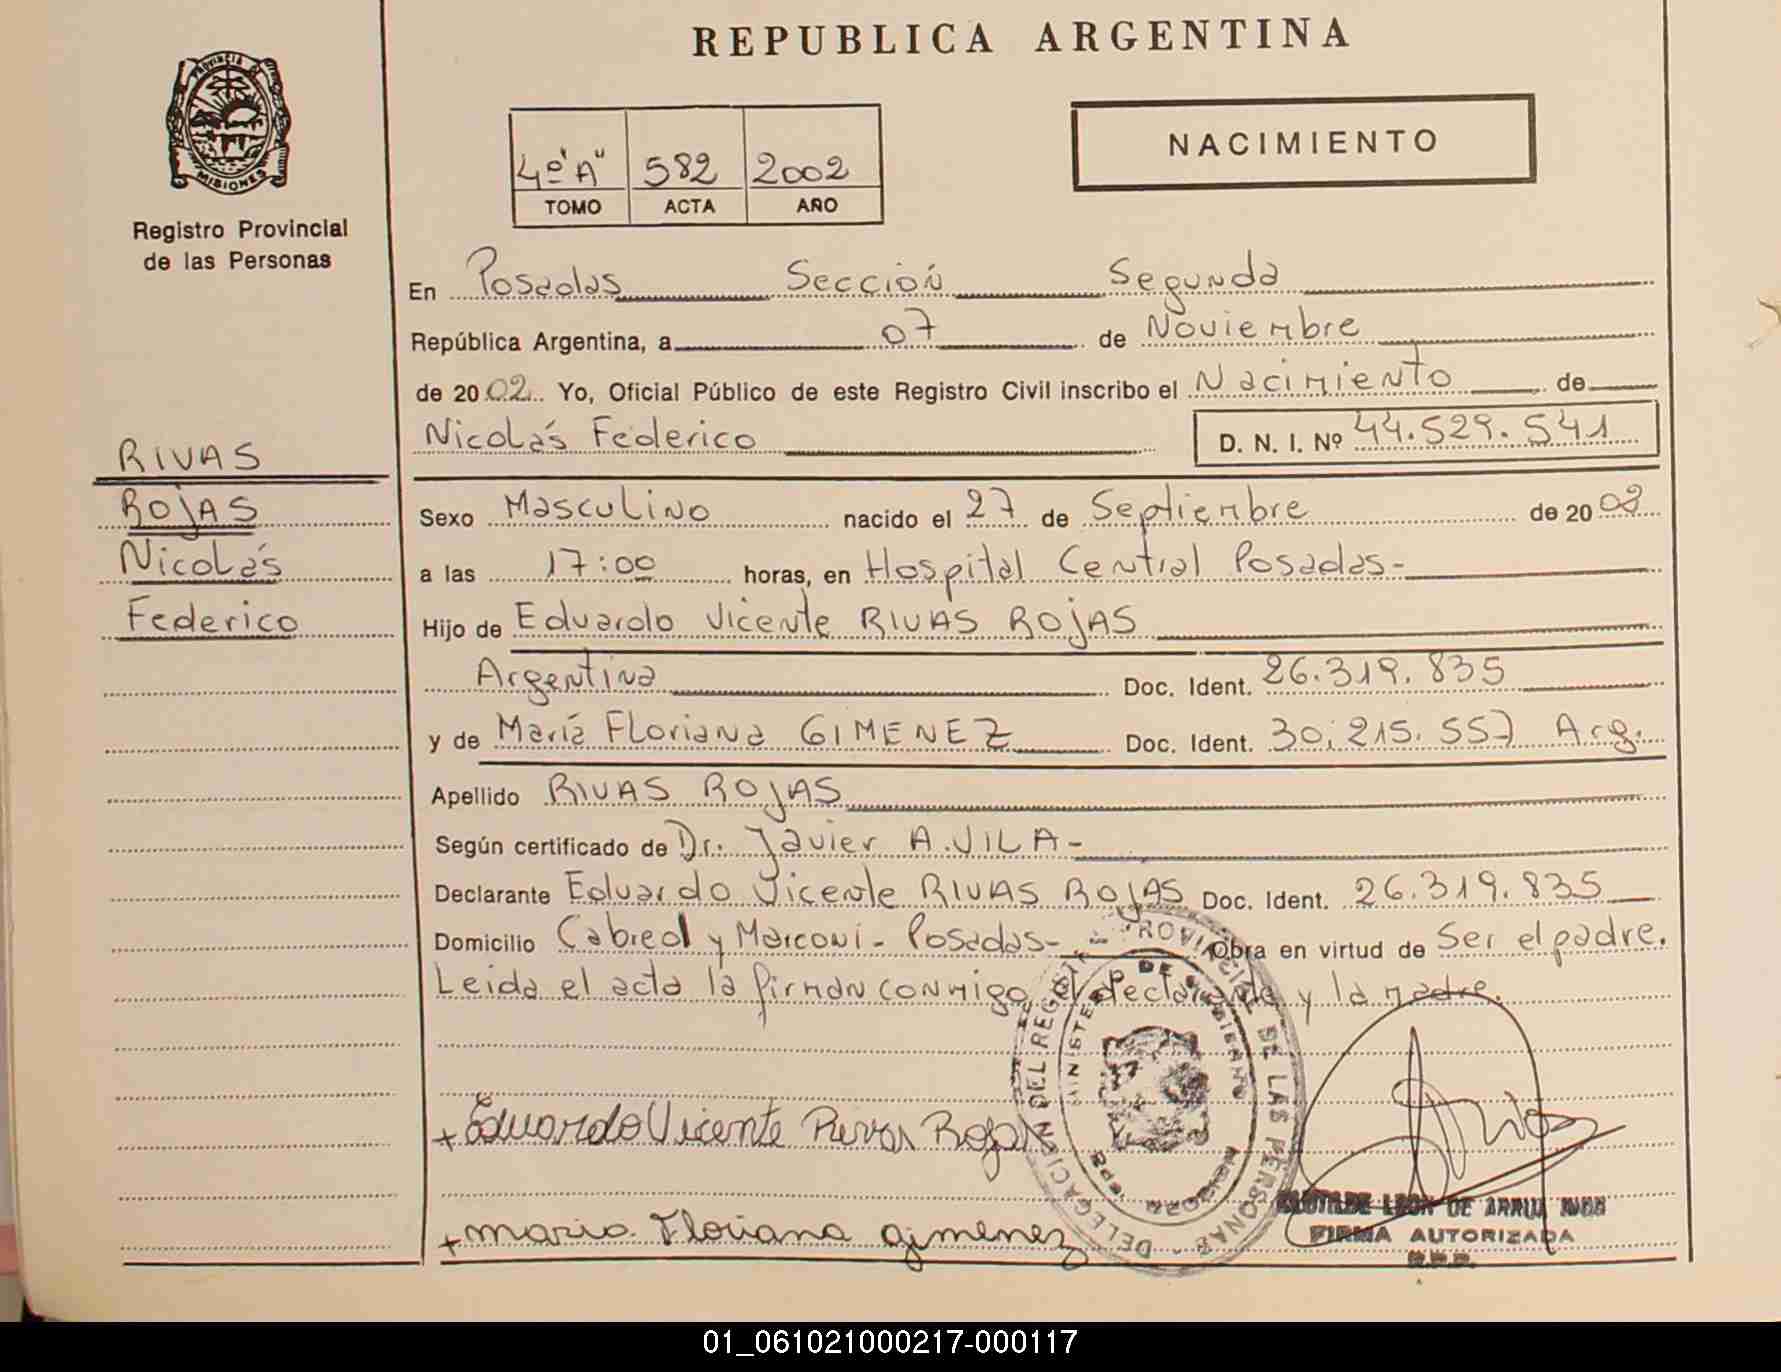 REPUBLICA ARGENTINA
PROVINCIA DE
MISIONES
Registro Provincial
de las Personas
4º "A" 582 2002
TOMO ACTA AÑO
NACIMIENTO
En Posadas Sección Segunda
República Argentina, a 07 de Noviembre
de 2002. Yo, Oficial Público de este Registro Civil inscribo el Nacimiento de
Nicolás Federico D. N. I. Nº 44.529.541
RIVAS
ROJAS
Nicolás
Federico
Sexo Masculino nacido el 27 de Septiembre de 2002
a las 17:00 horas, en Hospital Central Posadas-
Hijo de Eduardo Vicente RIVAS ROJAS
Argentina Doc. Ident. 26.319.835
y de María Floriana GIMENEZ Doc. Ident. 30.215.557 Arg.
Apellido RIVAS ROJAS
Según certificado de Dr. Javier A. VILA-
Declarante Eduardo Vicente RIVAS ROJAS Doc. Ident. 26.319.835
Domicilio Cabred y Marconi - Posadas- Obra en virtud de Ser el padre.
Leida el acta la firman conmigo el declarante y la madre.
DELEGACION DEL REGISTRO PROVINCIAL DE LAS PERSONAS
MINISTERIO DE GOBIERNO
Eduardo Vicente Rivas Rojas
Maria Floriana Gimenez
CLOTILDE LEON DE ARRUA
FIRMA AUTORIZADA
R.P.P.
01_061021000217-000117